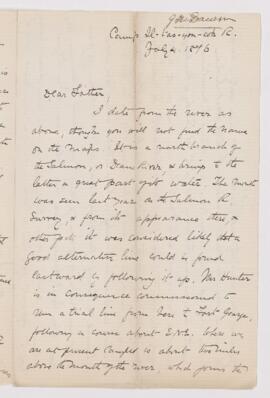 G.M. Dawson
Camp Il-tas-you-co R.
July 4. 1876
Dear Father,
I date from the river as
above, though you will not find the name
on the maps. It is a north branch of
the Salmon, or Dean River, & brings to the
latter a great part of its water. The mouth
was seen last year on the Salmon R.
Survey, & from its appearance there, &
other facts it was considered likely that a
good alternative line could be found
eastward by following it up. Mr Hunter
is in consequence commissioned to
run a trial line from here to Fort George,
following a course about E.N.E. Where we
are at present camped is about two miles
above the mouth of the river, which forms the